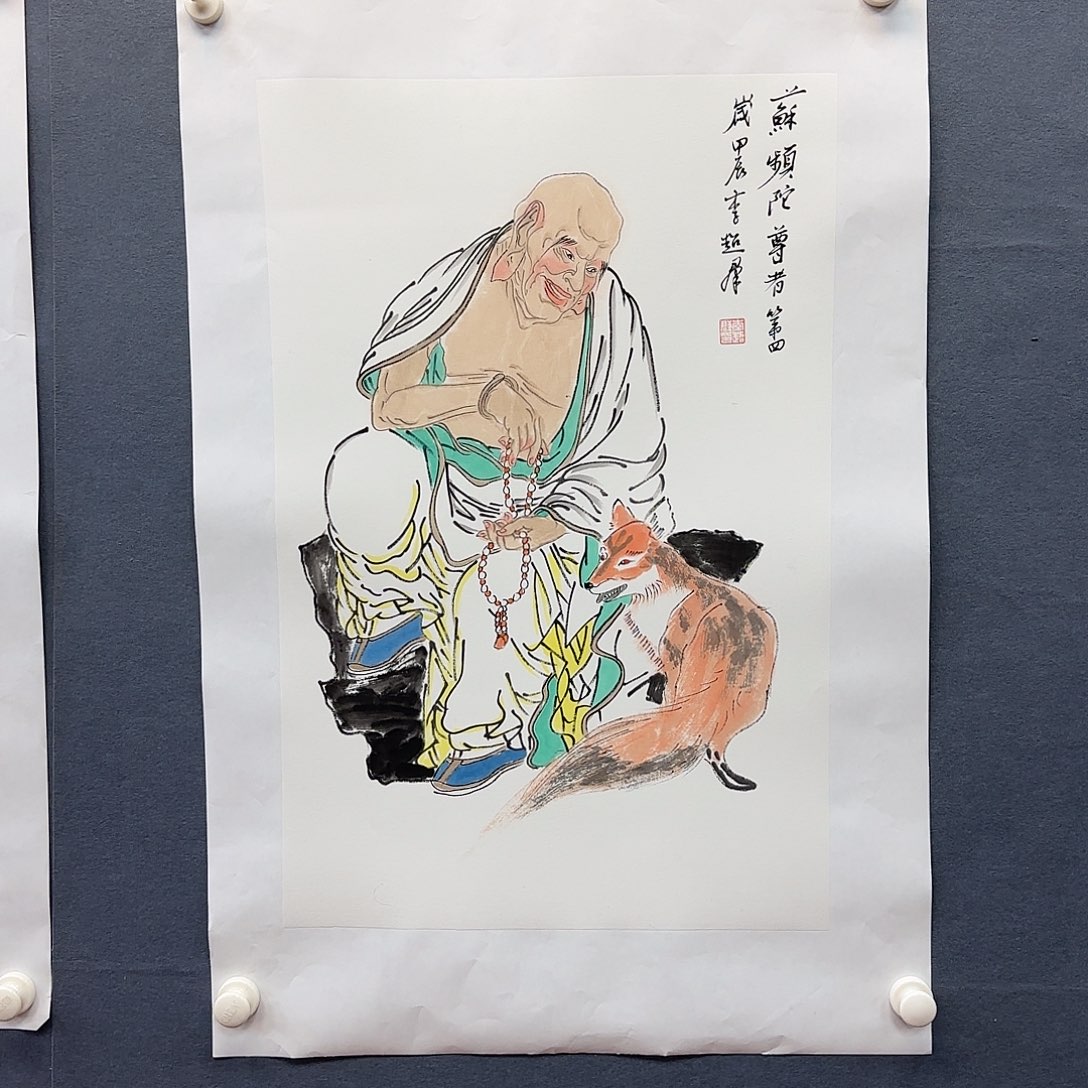 蘇頻陀尊者第四
歲甲辰李超群